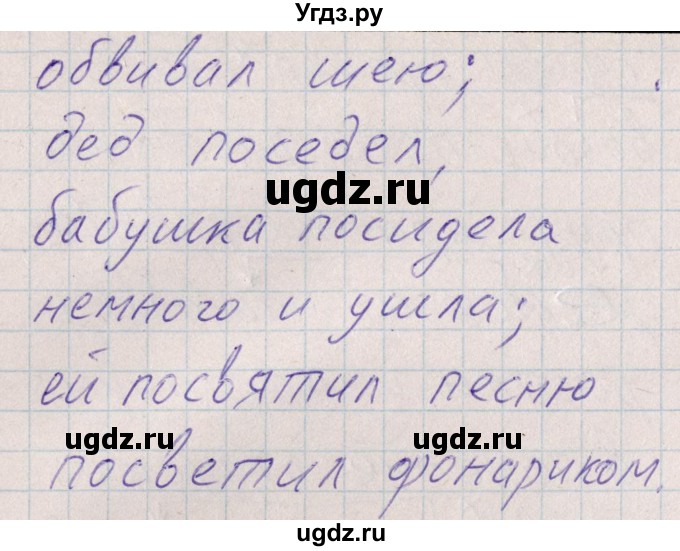 Угдз.ру
обвивал шею;
дед поседел,
ugdz.ru
бабушка посидела
немного и ушла;
ей посвятил песню
ugdz.ru ugdz.ru
посветил фонариком.
ugdz.ru